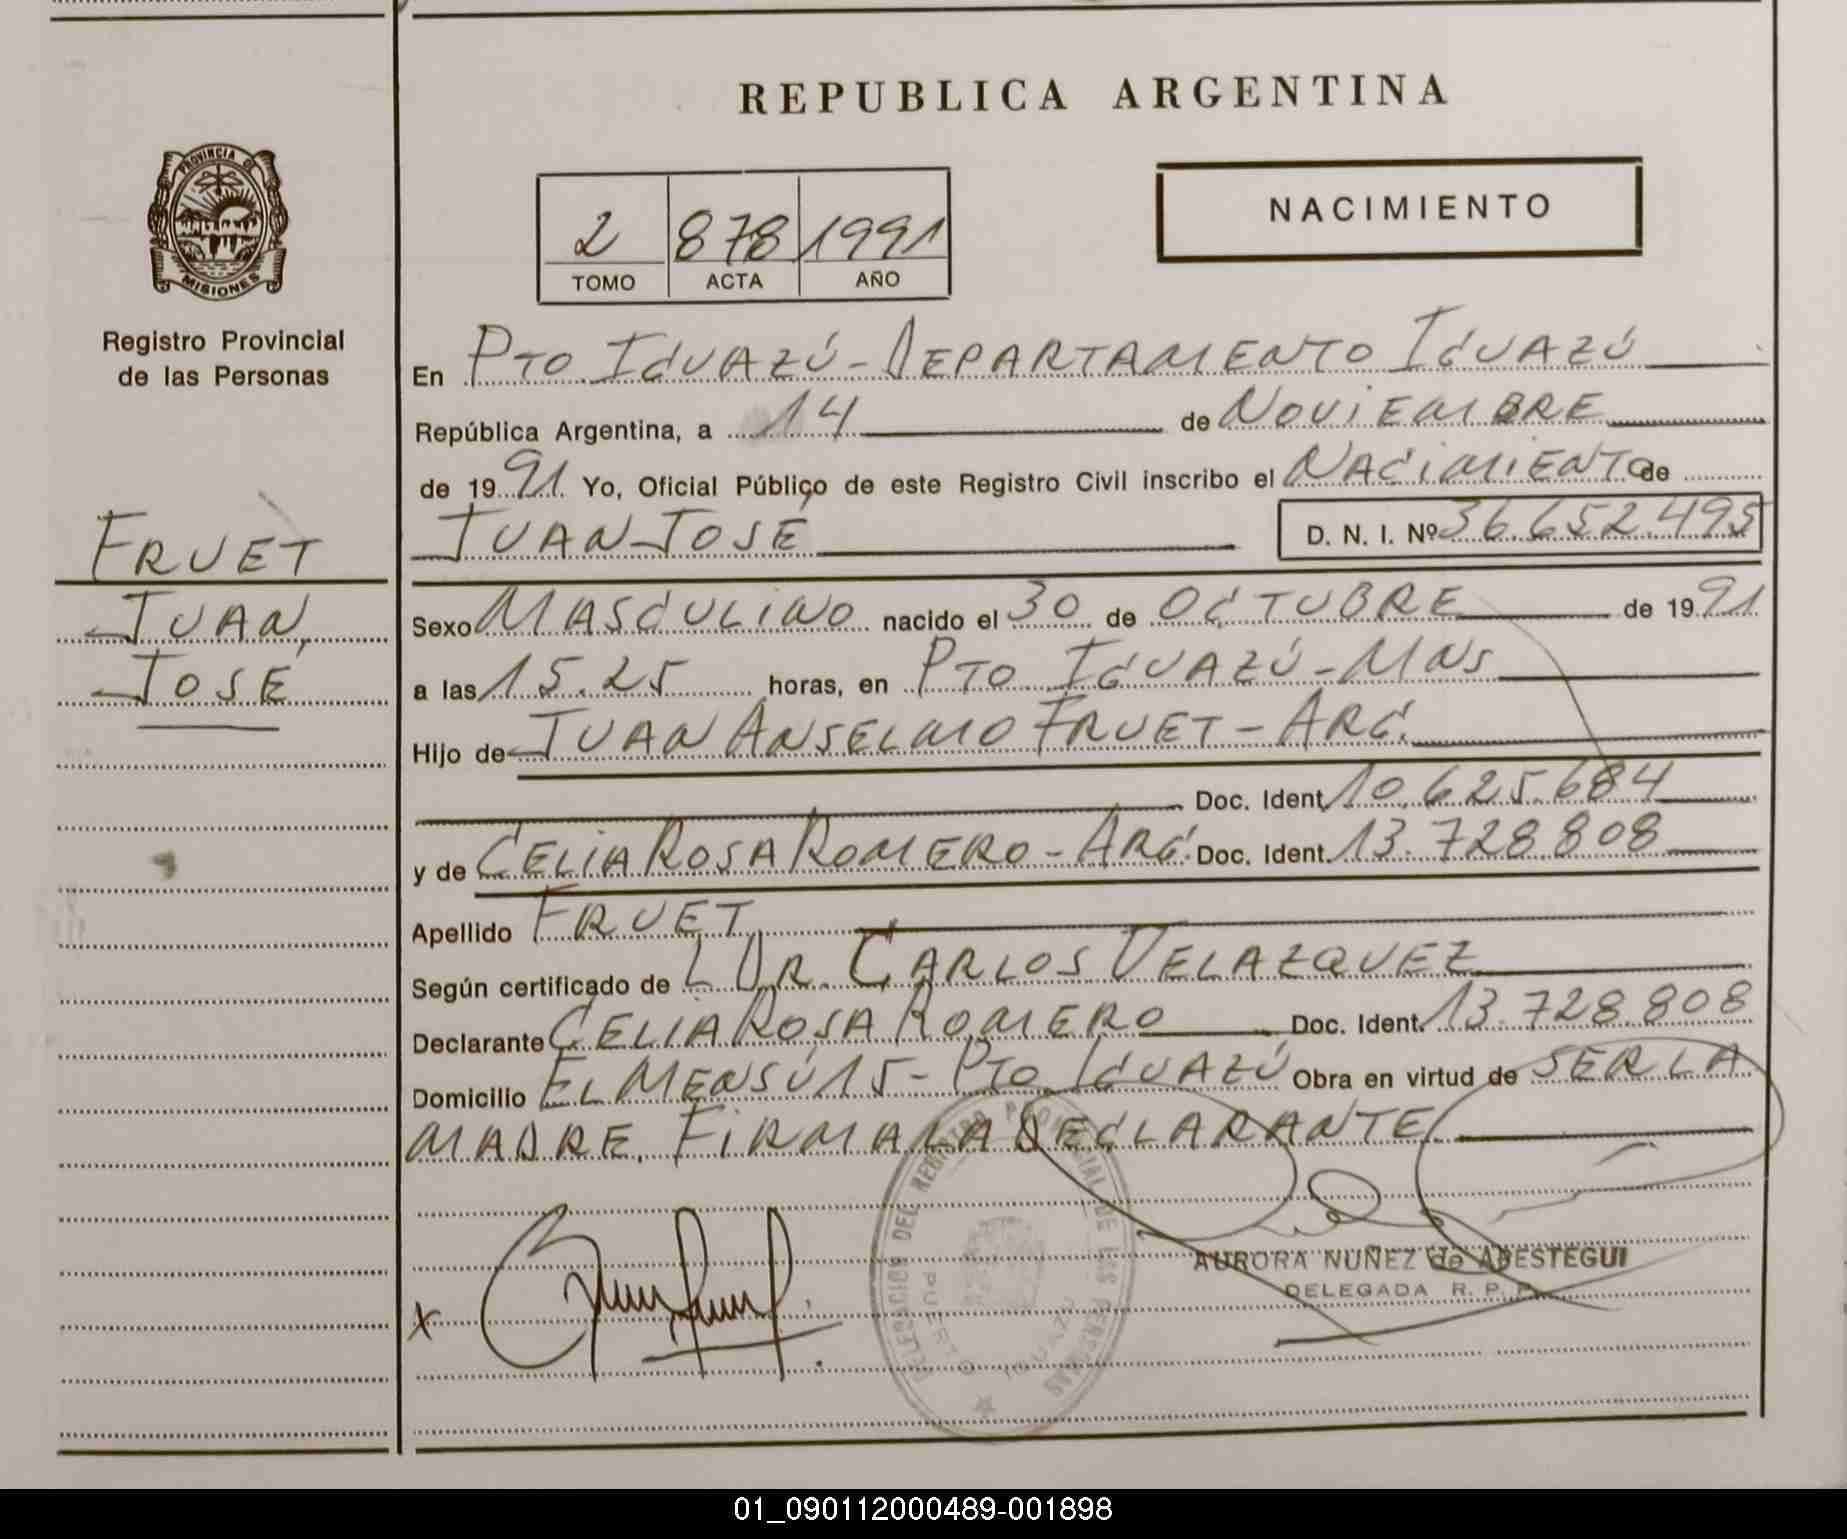 REPUBLICA ARGENTINA
PROVINCIA DE
MISIONES
Registro Provincial
de las Personas
2 878 1991
TOMO ACTA AÑO
NACIMIENTO
En PTO IGUAZÚ - DEPARTAMENTO IGUAZÚ
República Argentina, a 14 de NOVIEMBRE
de 1991 Yo, Oficial Público de este Registro Civil inscribo el NACIMIENTO de
JUAN JOSÉ D. N. I. Nº 36.652.495
FRUET
JUAN,
JOSE
Sexo MASCULINO nacido el 30 de OCTUBRE de 1991
a las 15.25 horas, en PTO IGUAZÚ - MNS
Hijo de JUAN ANSELMO FRUET - ARG.
Doc. Ident. 10.625.684
y de CELIA ROSA ROMERO - ARG. Doc. Ident. 13.728.808
Apellido FRUET
Según certificado de L DR. CARLOS VELAZQUEZ
Declarante CELIA ROSA ROMERO Doc. Ident. 13.728.808
Domicilio EL MENSÚ 15 - PTO IGUAZÚ Obra en virtud de SER LA
MADRE. FIRMA LA DECLARANTE
DELEGACION DEL REGISTRO PROVINCIAL DE LAS PERSONAS
PUERTO IGUAZU
AURORA NUÑEZ de ABESTEGUI
DELEGADA R. P. P.
X
01_090112000489-001898